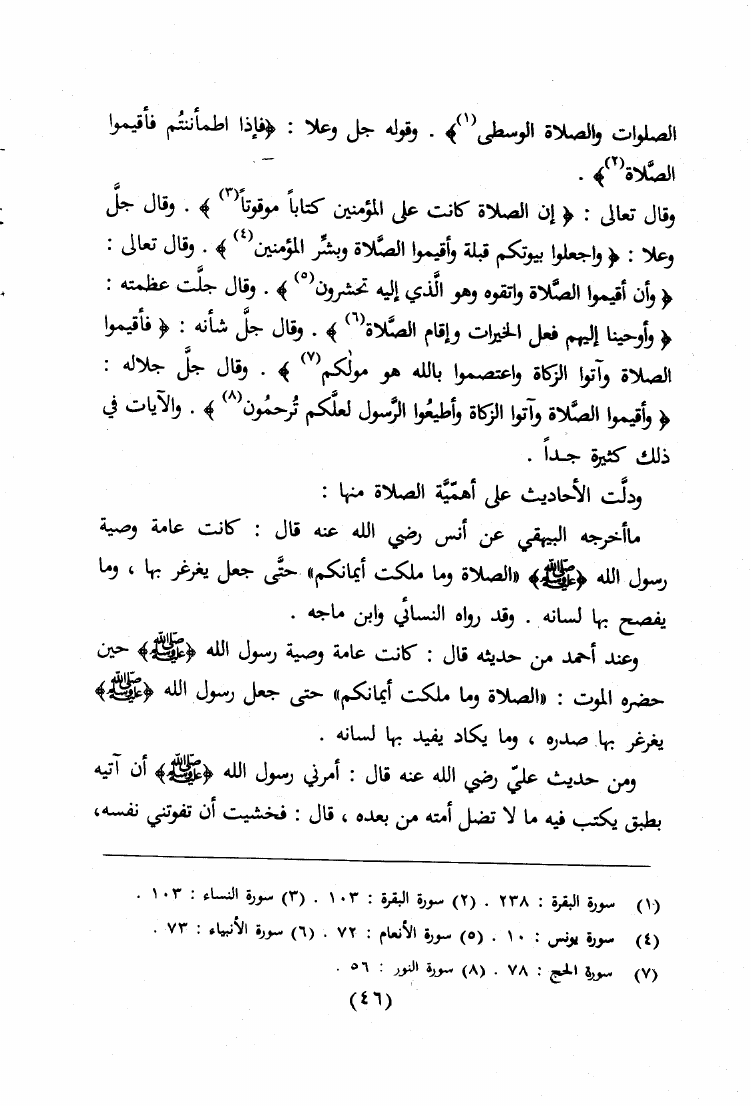 الصلوات والصلاة الوسطى(١)﴾ . وقوله جل وعلا : ﴿فإذا اطمأننتُم فأقيموا
الصَّلاة(٢)﴾ .
وقال تعالى : ﴿ إن الصلاة كانت على المؤمنين كتاباً موقوتاً(٣) ﴾ . وقال جلَّ
وعلا : ﴿ واجعلوا بيوتكم قبلة وأقيموا الصَّلاة وبشِّر المؤمنين(٤) ﴾ . وقال تعالى :
﴿ وأن أقيموا الصَّلاة واتقوه وهو الَّذي إليه تحشرون(٥) ﴾ . وقال جلَّت عظمته :
﴿ وأوحينا إليهم فعل الخيرات وإقام الصَّلاة(٦) ﴾ . وقال جلَّ شأنه : ﴿ فأقيموا
الصلاة وآتوا الزكاة واعتصموا بالله هو مولٰكم(٧) ﴾ . وقال جلَّ جلاله :
﴿ وأقيموا الصَّلاة وآتوا الزكاة وأطيعُوا الرَّسول لعلَّكم تُرحمُون(٨) ﴾ . والآيات في
ذلك كثيرة جـداً .
ودلَّت الأحاديث على أهمّيَّة الصلاة منها :
ماأخرجه البيهقي عن أنس رضي الله عنه قال : كانت عامة وصية
رسول الله ﴿ﷺ﴾ «الصلاة وما ملكت أيمانكم» حتَّى جعل يغرغر بها ، وما
يفصح بها لسانه . وقد رواه النسائي وابن ماجه .
وعند أحمد من حديثه قال : كانت عامة وصية رسول الله ﴿ﷺ﴾ حين
حضره الموت : «الصلاة وما ملكت أيمانكم» حتى جعل رسول الله ﴿ﷺ﴾
يغرغر بها صدره ، وما يكاد يفيد بها لسانه .
ومن حديث عليّ رضي الله عنه قال : أمرني رسول الله ﴿ﷺ﴾ أن آتيه
بطبق يكتب فيه ما لا تضل أمته من بعده ، قال : فخشيت أن تفوتني نفسه،
(١) سورة البقرة : ٢٣٨ . (٢) سورة البقرة : ١٠٣ . (٣) سورة النساء : ١٠٣ .
(٤) سورة يونس : ١٠ . (٥) سورة الأنعام : ٧٢ . (٦) سورة الأنبياء : ٧٣ .
(٧) سورة الحج : ٧٨ . (٨) سورة النور : ٥٦ .
(٤٦)